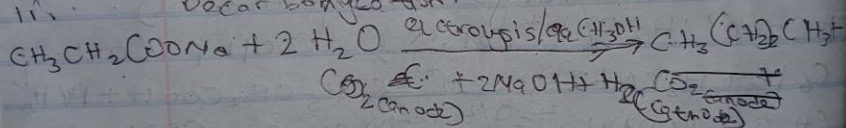 11. Decarboxylation.
CH3CH2COONa + 2 H2O electroysis/aq CH3OH → CH3(CH2)2CH3 +
CO2 (anode) + 2NaOH + H2 (cathode) CO2 (anode) +